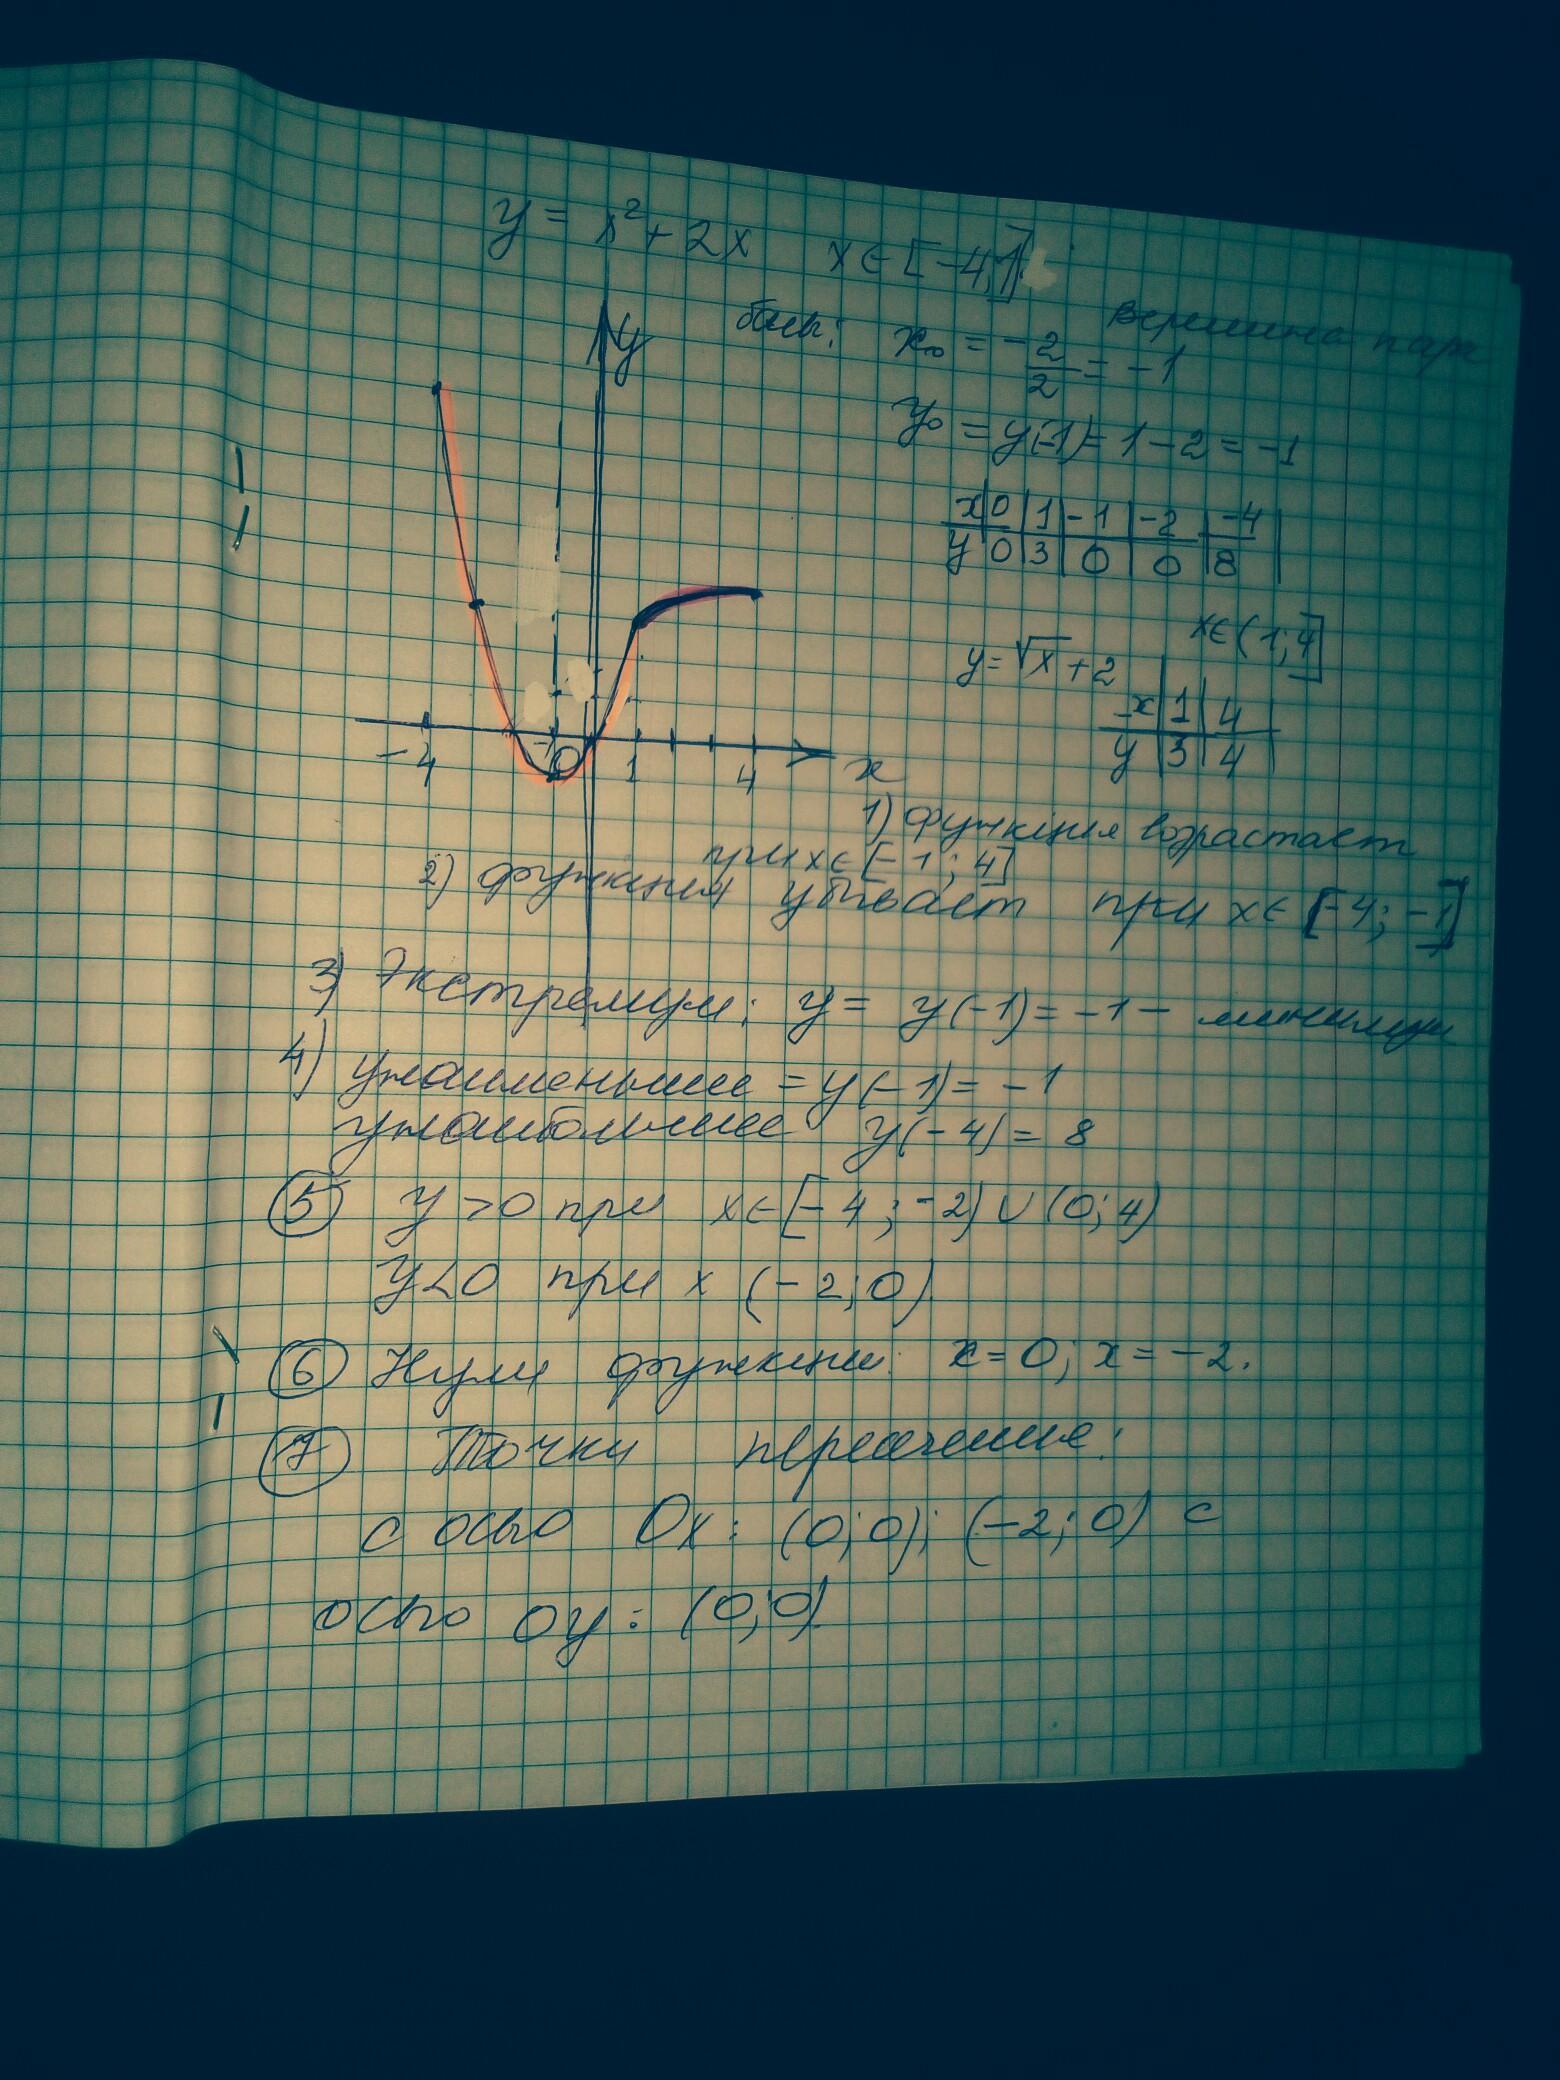 y = x² + 2x x ∈ [-4; 1]
y
x₀ = -2/2 = -1 Вершина пар
y₀ = y(-1) = 1 - 2 = -1
x 0 1 -1 -2 -4
y 0 3 0 0 8
x ∈ (1; 4]
y = √x + 2
x 1 4
y 3 4
-4 -1 0 1 4 x
1) функция возрастает
при x ∈ [-1; 4]
2) функция убывает при x ∈ [-4; -1]
3) Экстремум: y = y(-1) = -1 - минимум
4) yнаименьшее = y(-1) = -1
yнаибольшее y(-4) = 8
5 y > 0 при x ∈ [-4; -2) ∪ (0; 4)
y < 0 при x (-2; 0)
6 Нули функции: x = 0; x = -2.
7 Точки пересечение:
с осью Ox: (0; 0); (-2; 0) с
осью oy: (0; 0)